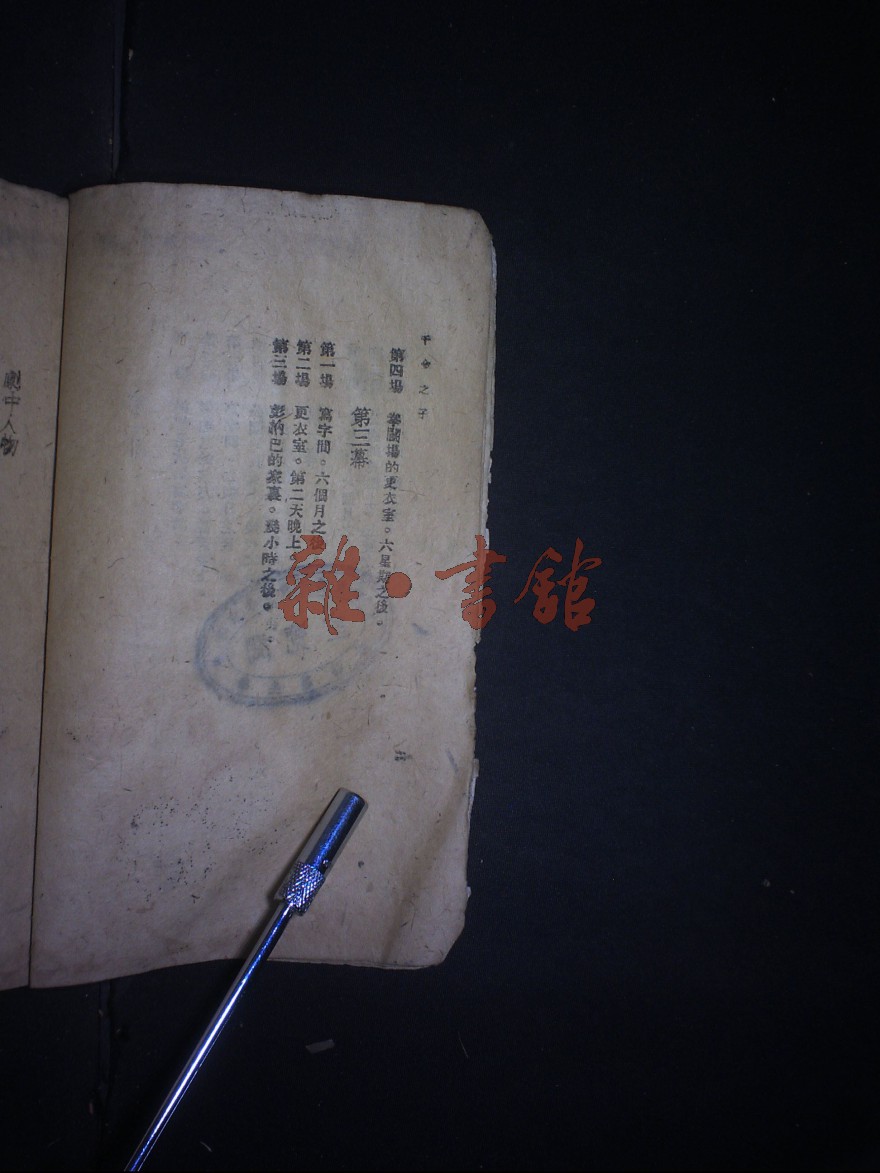 千金之子
第四場 拳鬭場的更衣室。六星期之後。
第三幕
第一場 寫字間。六個月之後。
第二場 更衣室。第二天晚上。
第三場 彭納巴的家裏。幾小時之後。
劇中人物
雜·書館